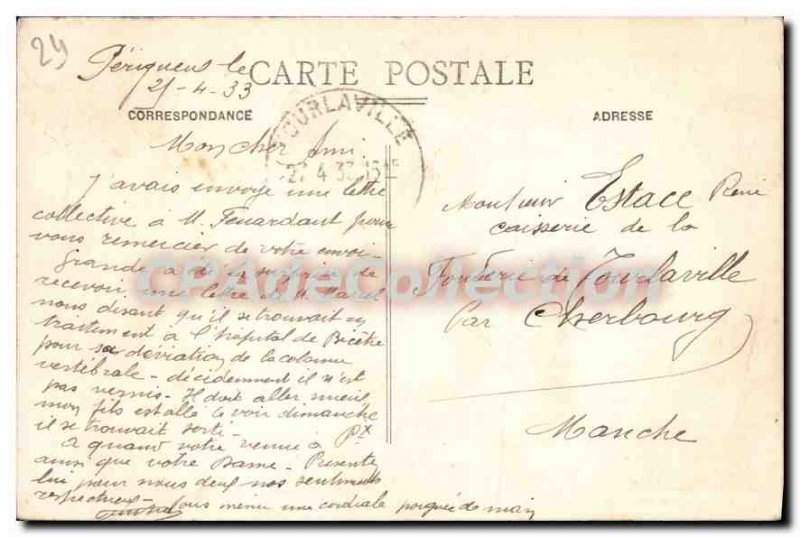 24
Périgueux le
CARTE POSTALE
25-4-33
CORRESPONDANCE
TOURLAVILLE
27-4 33
Mon cher Ami
J'avais envoyé une lettre
collective à M. Fenardant pour
vous remercier de votre envoi-
Grande a été la surprise de
recevoir une lettre de M.
nous disant qu'il se trouvait en
traitement à l'hôpital de Bicêtre
pour sa déviation de la colonne
vertébrale - décidemment il n'est
pas vernis - Il doit aller mieux
mon fils est allé le voir dimanche
il se trouvait sorti -
A quand votre venue à Px
ainsi que votre Dame - Présentez
lui pour nous deux nos sentiments
respectueux -
une cordiale poignée de main
ADRESSE
Monsieur Estace René
caisserie de la
Fonderie de Tourlaville
Par Cherbourg
Manche
CPADeCollection